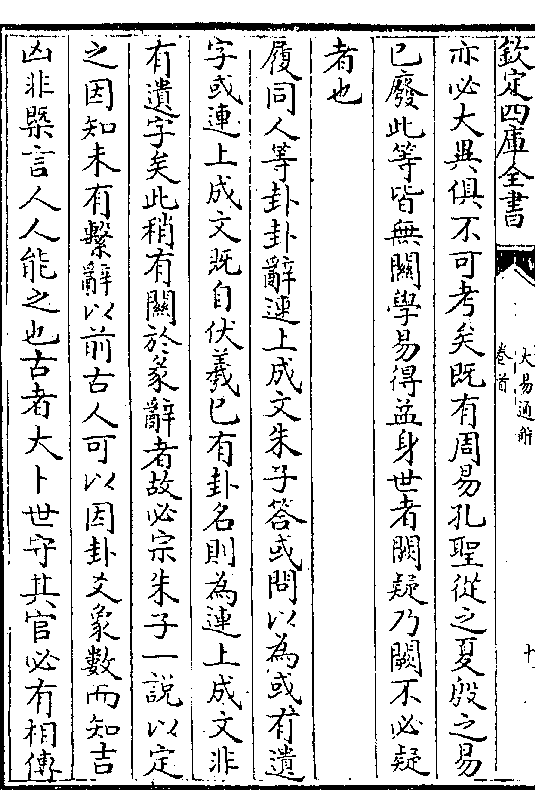 欽定四庫全書
大易通解
卷首
十
亦必大異俱不可考矣既有周易孔聖從之夏殷之易
已廢此等皆無關學易得益身世者闕疑乃闕不必疑
者也
履同人等卦卦辭連上成文朱子答或問以為或有遺
字或連上成文既自伏羲已有卦名則為連上成文非
有遺字矣此稍有關於彖辭者故必宗朱子一說以定
之因知未有繫辭以前古人可以因卦爻象數而知吉
凶非槩言人人能之也古者大卜世守其官必有相傳